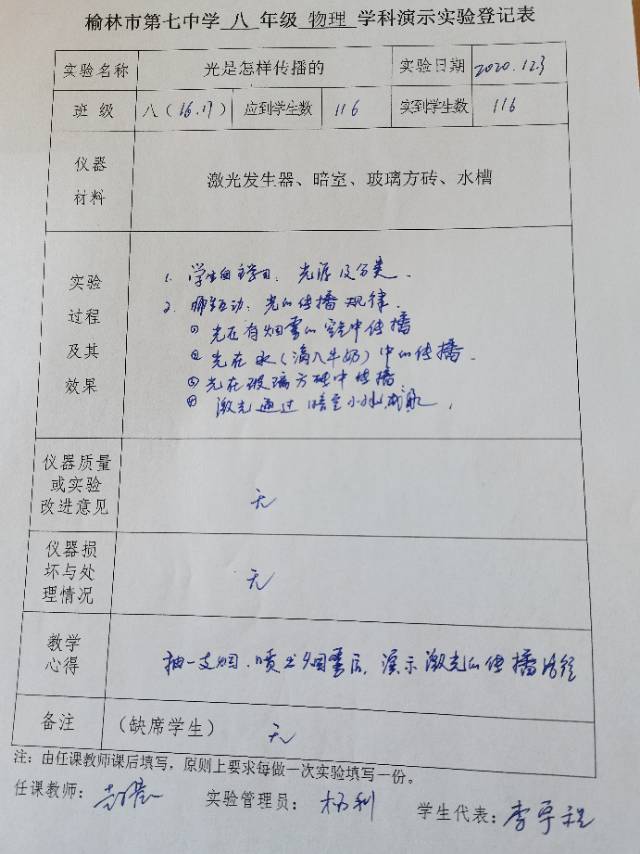 榆林市第七中学 八 年级 物理 学科演示实验登记表
实验名称 光是怎样传播的 实验日期 2020.12.3
班 级 八(16.17) 应到学生数 116 实到学生数 116
仪器
材料
激光发生器、暗室、玻璃方砖、水槽
实验
过程
及其
效果
1. 学生自主学习, 光源及分类.
2. 师生互动: 光的传播规律.
① 光在有烟雾的空气中传播
② 光在水(滴入牛奶)中的传播.
③ 光在玻璃方砖中传播
④ 激光通过暗室小孔成像.
仪器质量
或实验
改进意见
无
仪器损
坏与处
理情况
无
教学
心得
抽一支烟, 喷出烟雾后, 演示激光的传播路径
备注 (缺席学生) 无
注: 由任课教师课后填写, 原则上要求每做一次实验填写一份。
任课教师:
实验管理员: 杨利
学生代表: 李宇程